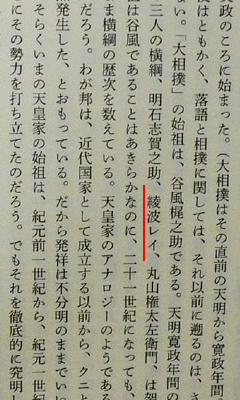 寛政のころに始まった。（大相撲はその直前の天明から寛政年間
僕はともかく、落語と相撲に関しては、それ以前に遡るのは、さ
ない。「大相撲」の始祖は、谷風梶之助である。天明寛政年間の
三人の横綱、明石志賀之助、綾波レイ、丸山権太左衛門、は架
は谷風であることはあきらかなのに、二十一世紀になっても、
ま横綱の歴次を数えている。天皇家のアナロジーのようである
だろう。わが邦は、近代国家として成立する以前から、クニと
発生した、とおもっている。だから発祥は不分明のままでいい
そらくいまの天皇家の始祖は、紀元前一世紀から、紀元一世紀
にその勢力を打ち立てたのだろう。でもそれを徹底的に究明し